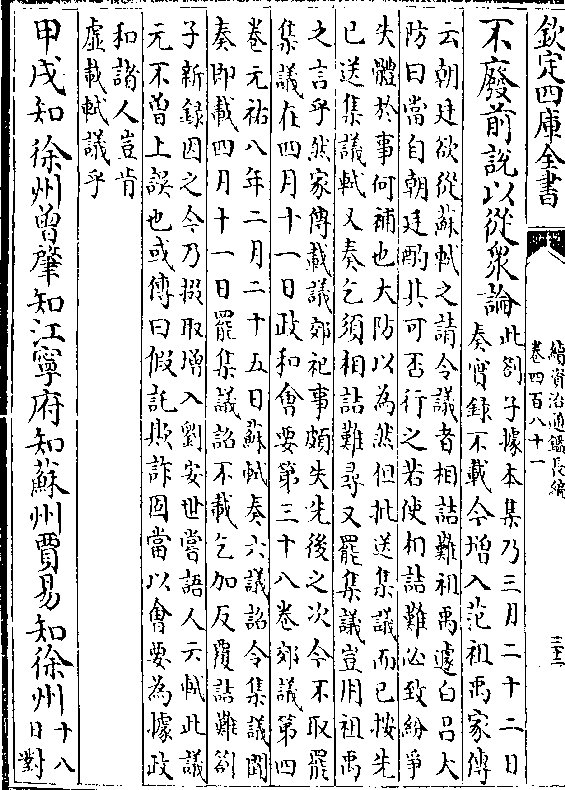 欽定四庫全書
續資治通鑑長編
卷四百八十一
三十二
不廢前說以從衆論此劄子據本集乃三月二十二日
奏實録不載今增入范祖禹家傳
云朝廷欲從蘇軾之請令議者相詰難祖禹遽白呂大
防曰當自朝廷酌其可否行之若使相詰難必致紛爭
失體於事何補也大防以為然但批送集議而已按先
已送集議軾又奏乞須相詰難尋又罷集議豈用祖禹
之言乎然家傳載議郊祀事頗失先後之次今不取罷
集議在四月十一日政和會要第三十八卷郊議第四
卷元祐八年二月二十五日蘇軾奏六議詔令集議聞
奏即載四月十一日罷集議詔不載乞加反覆詰難劄
子新録因之今乃掇取增入劉安世嘗語人云軾此議
元不曾上誤也或傳曰假託欺詐固當以會要為據政
和諸人豈肯
虛載軾議乎
甲戌知徐州曾肇知江寧府知蘇州賈易知徐州十八
日對